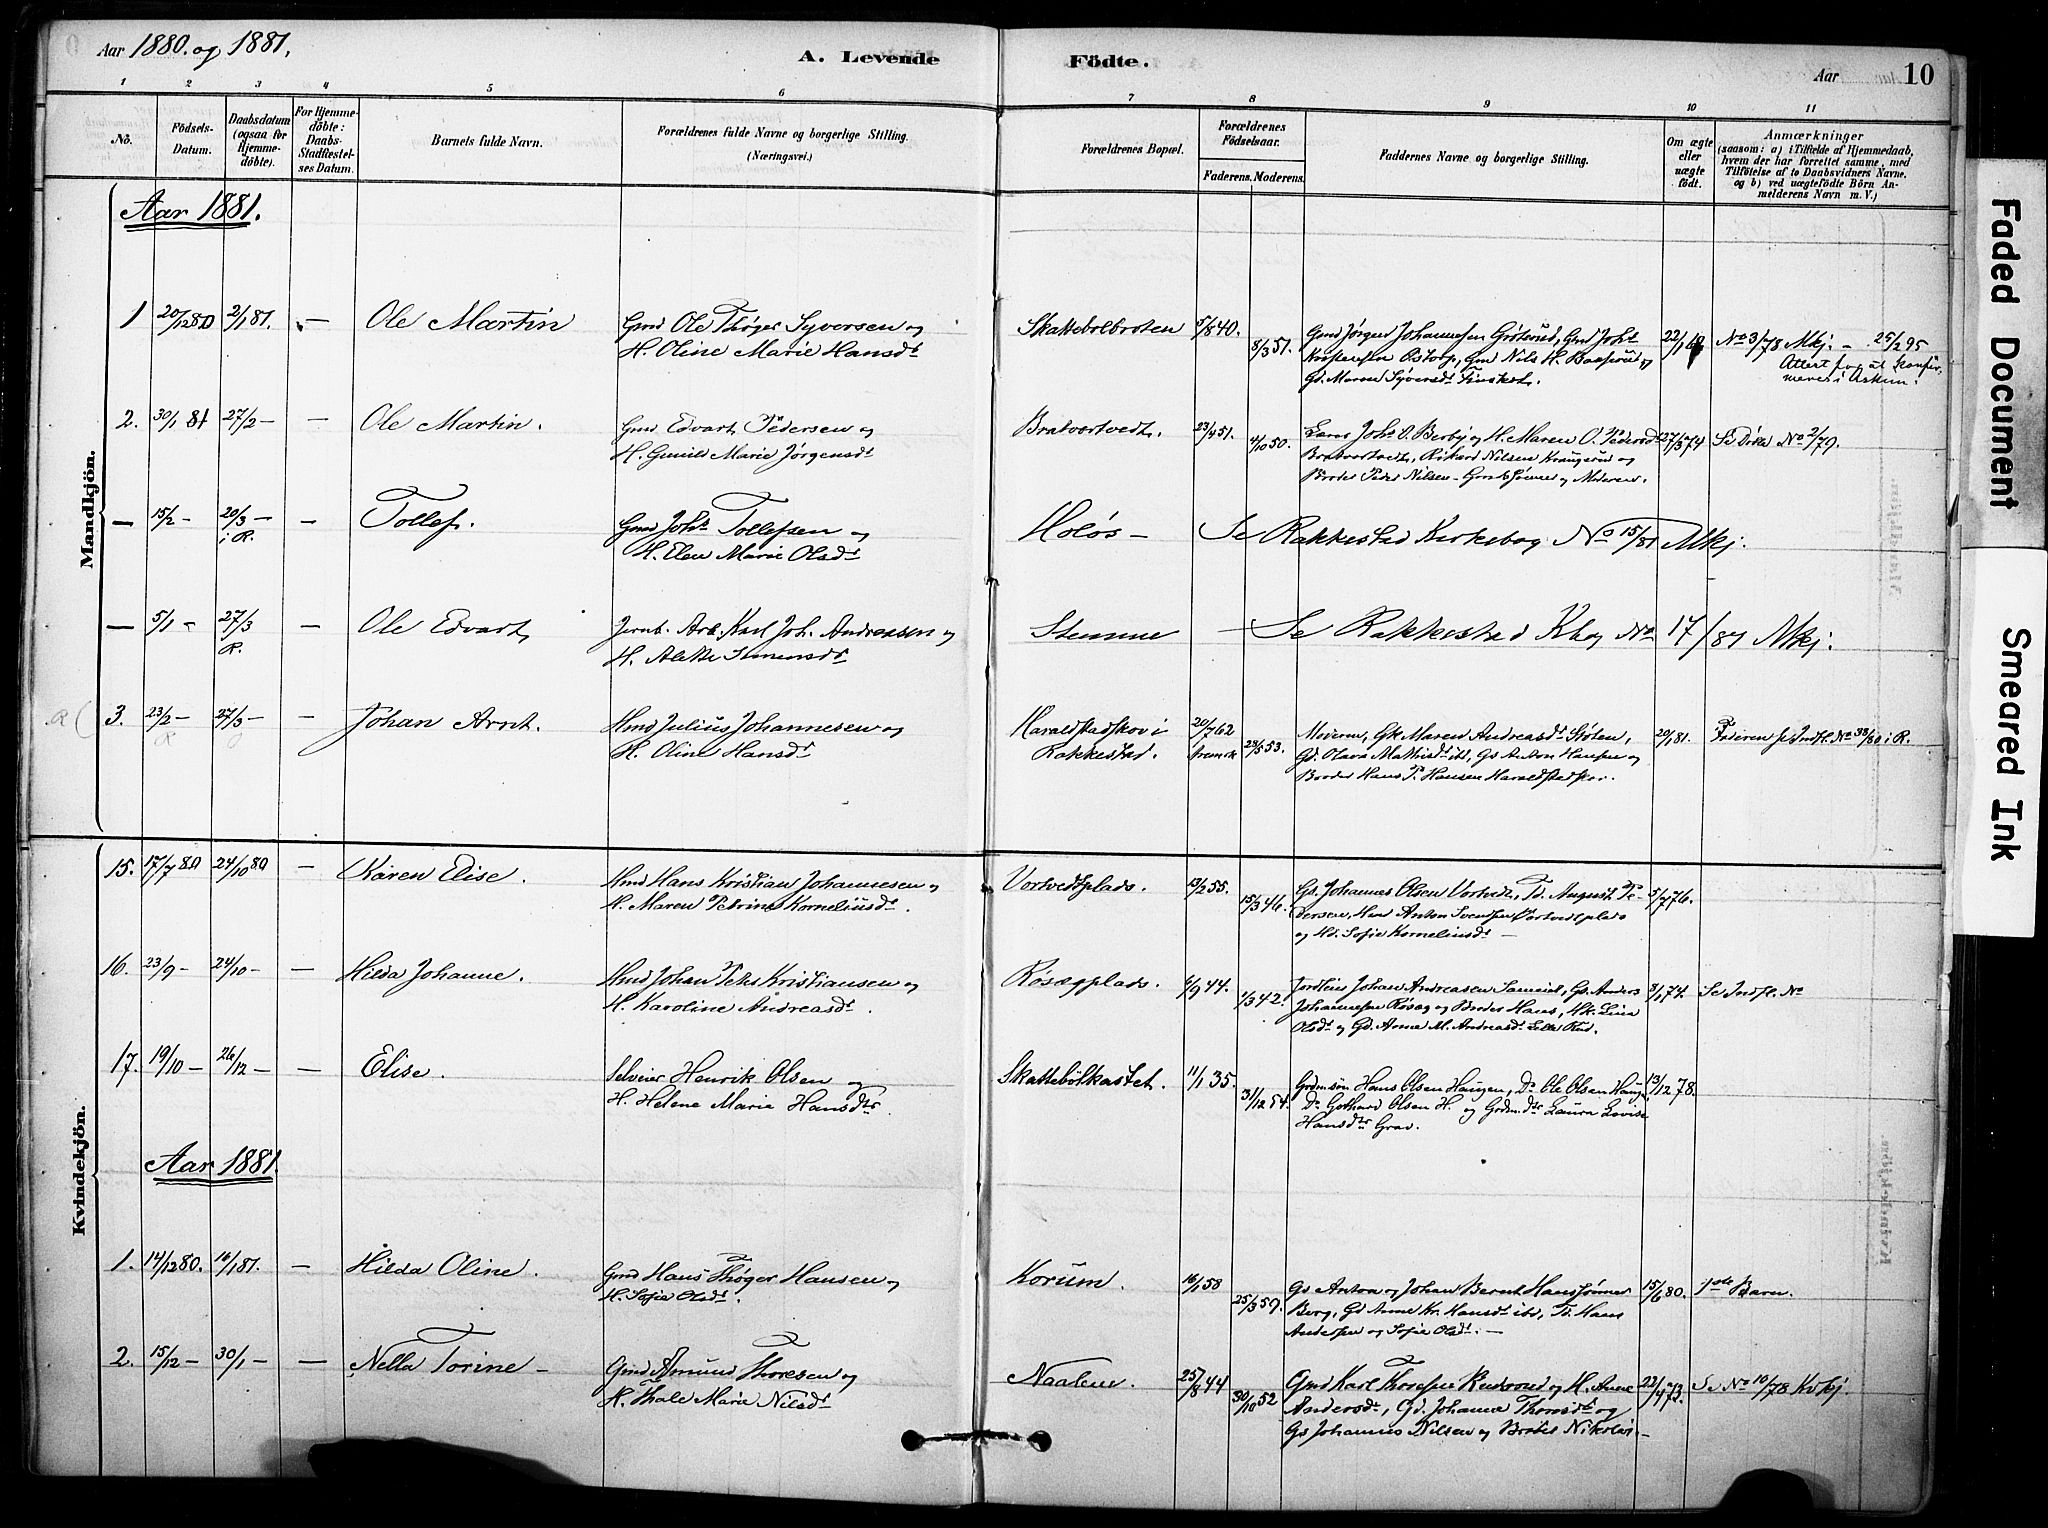 Aar 1880. og 1881.
A. Levende
Födte.
Aar
10
1 2 3 4 5 6
7 8 9 10 11
No.
Födsels-
Datum.
Daabsdatum
(ogsaa for
Hjemme-
döbte).
For Hjemme-
döbte:
Daabs-
Stadfæstel-
ses Datum.
Barnets fulde Navn.
Forældrenes fulde Navne og borgerlige Stilling.
(Næringsvei.)
Forældrenes Bopæl.
Forældrenes
Födselsaar.
Faderens. Moderens.
Faddernes Navne og borgerlige Stilling.
Om ægte
eller
uægte
födt.
Anmærkninger
(saasom: a) i Tilfælde af Hjemmedaab,
hvem der har forrettet samme, med
Tilföielse af to Daabsvidners Navne,
og b) ved uægtefödte Börn An-
melderens Navn m. V.)
Mandkjön.
Aar 1881.
1 20/12 80 2/1 81. — Ole Martin
Gmd Ole Thøger Syversen og
H. Oline Marie Hansdt
Skattebølbraten 5/8 40. 8/3 51.
Gmd Jørgen Johannesen Grötsrud, Gmd Johs
Østorp, Gmd Nils H.
Gd. Maren Syversdt
22/1
No 3/78 Mkj. — 25/2 95
Attest for at konfir-
meres i Askim.
2. 30/1 81 27/2 — — Ole Martin.
Gmd Edvart Pedersen og
H. Gunild Marie Jørgensdt
Bratvortvedt. 23/4 51. 4/10 50.
Johs O. Berby og H. Maren O. Pedersdt
Rikard Nilsen Krangerud og
Broder Peder Nilsen — og Moderen.
27/3 74
Se Døbte No 2/79.
— 15/2 — 20/3 — i R. — Tollef.
Gmd Johs Tollefsen og
H. Elen Marie Olsdt
Holøs — Se Rakkestad Kirkebog No 15/81 Mkj.
— 5/1 — 27/3 R. — Ole Edvart
Jernb. Arb. Karl Joh. Andreassen og
H. Alette Simensdt
Stemme — Se Rakkestad Kbog No 17/81 Mkj.
R ( 3. 23/2 — 27/3 — — Johan Arnt.
Hmd Julius Johannesen og
H. Oline Hansdt
Haraldstadskov i
Rakkestad.
20/7 62 53.
Moderen, Gk. Maren Andreasdt Stølen,
Gd. Olava Mathisdt ibd, Gs Anton Hansen og
Broder Hans T. Hansen Haraldstadskov.
20/1 81.
Faderen se Indfl. No 38/80 i R.
Kvindekjön.
15. 17/7 80 24/10 80 — Karen Elise.
Hmd Hans Kristian Johannesen og
H. Maren Petrine Korneliusdt.
Vortvedtplads. 13/2 55. 15/3 46.
Gs. Johannes Olsen Vortvedt, Td. August Pe-
dersen, Hmd Anton Svensen Vortvedtplads
og Hd. Sofie Korneliusdt —
5/7 76.
16. 23/9 — 24/10 — — Hilda Johanne.
Hmd Johan Peter Kristiansen og
H. Karoline Andreasdt.
Røsægplads. 6/9 44. 1/3 42.
Johan Andreasen Gs. Anders
Johannesen Røsæg og Broder Hans, Hk. Lina
Olsdt og Gd. Anne M. Andreasdt Lille Rud.
3/1 74.
Se Indfl. No
17. 19/10 — 26/12 — — Elise.
Selveier Henrik Olsen og
H. Helene Marie Hansdtr.
Skattebölkastet. 11/1 35. 31/12 54.
Grdmsön Hans Olsen Haugen, Do Ole Olsen Haugen,
Do Gothard Olsen H. og Grdm.dtr Laura Lovise
Hansdtr Grav.
13/12 78.
Aar 1881.
1. 14/12 80. 16/1 81. — Hilda Oline.
Gmd Hans Thøger Hansen og
H. Sofie Olsdt.
Korum. 16/1 58 25/3 59.
Gs Anton og Johan Bernt Hanssønner
Berg, Gd Anne Kr. Hansdt ibd, Td. Hans
Andersen og Sofie Olsdt. —
15/6 80.
1ste Barn.
2. 15/12 — 30/1 — — Nella Torine —
Gmd Amund Thoresen og
H. Thale Marie Nilsdt
Naalene. 25/8 44 30/10 52
Gmd Karl Thoresen Rudsrud og H. Anne
Andersdt, Gd. Johanne Thoresdt og
Gs Johannes Nilsen og Broder Nikolai —
22/4 73.
Se No 10/78 Kvkj.
Faded Document
Smeared Ink